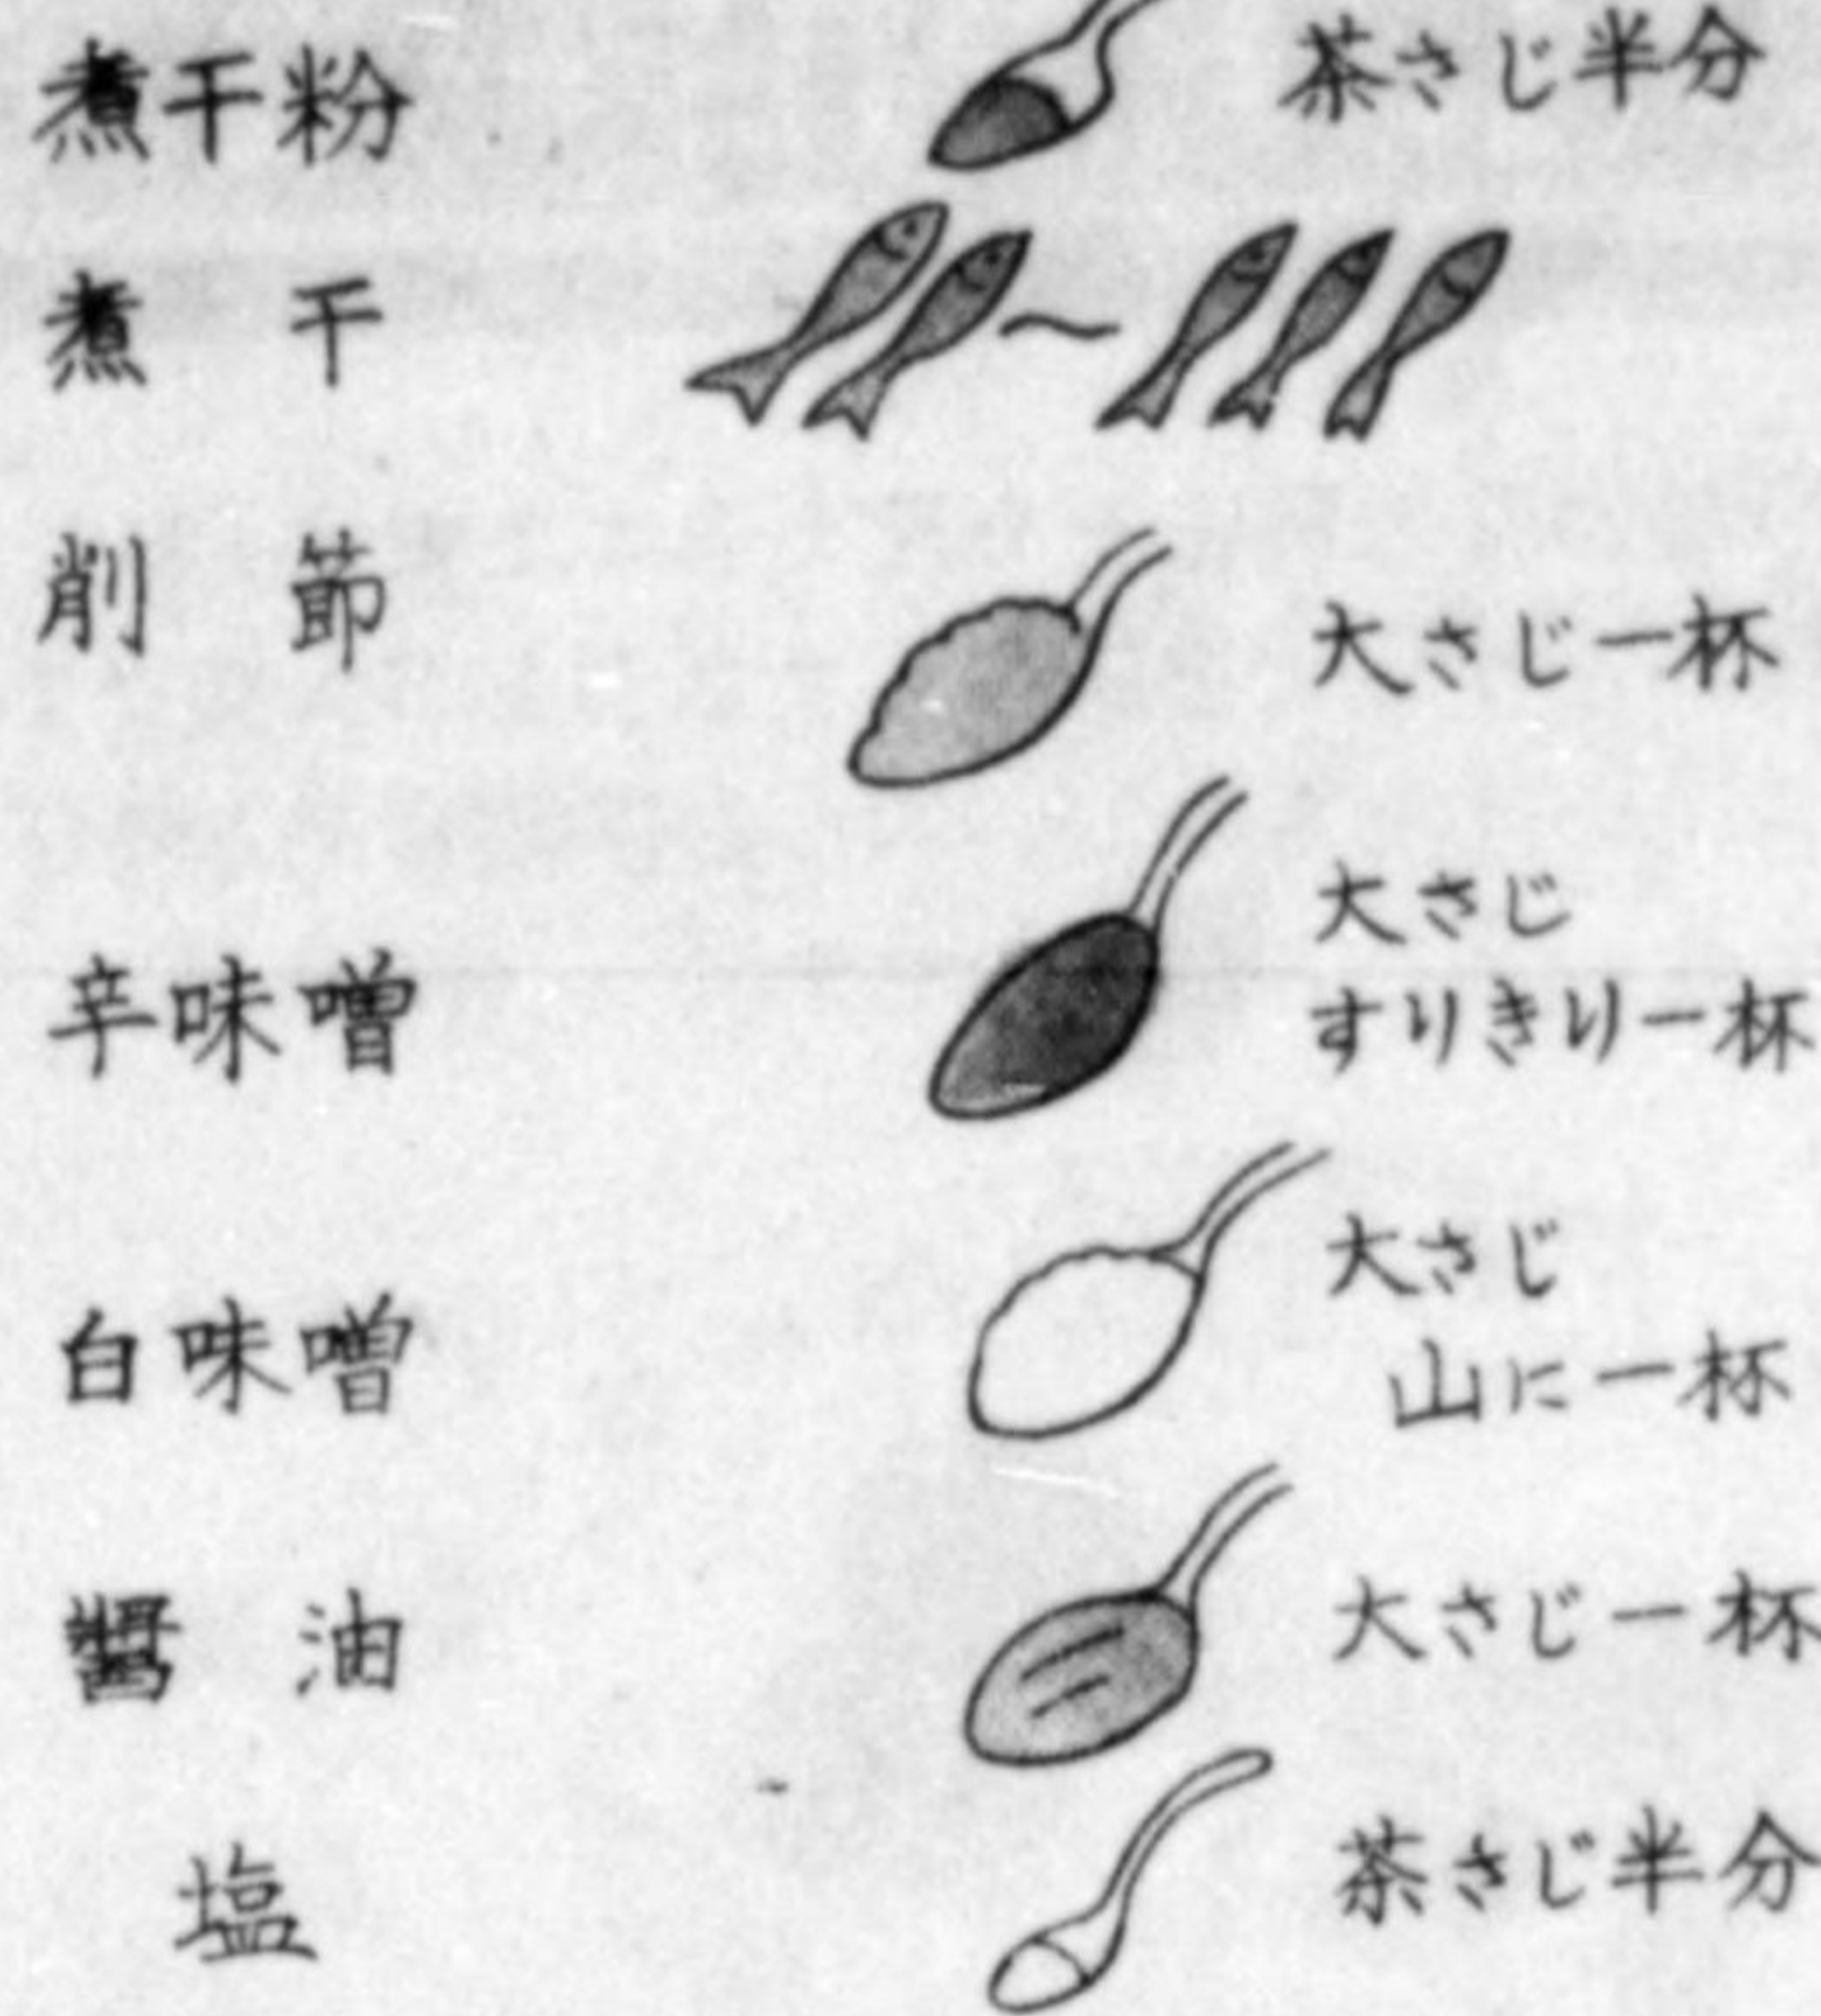 煮干粉 茶さじ半分
煮干 ～
削節 大さじ一杯
辛味噌 大さじ
すりきり一杯
白味噌 大さじ
山に一杯
醤油 大さじ一杯
塩 茶さじ半分